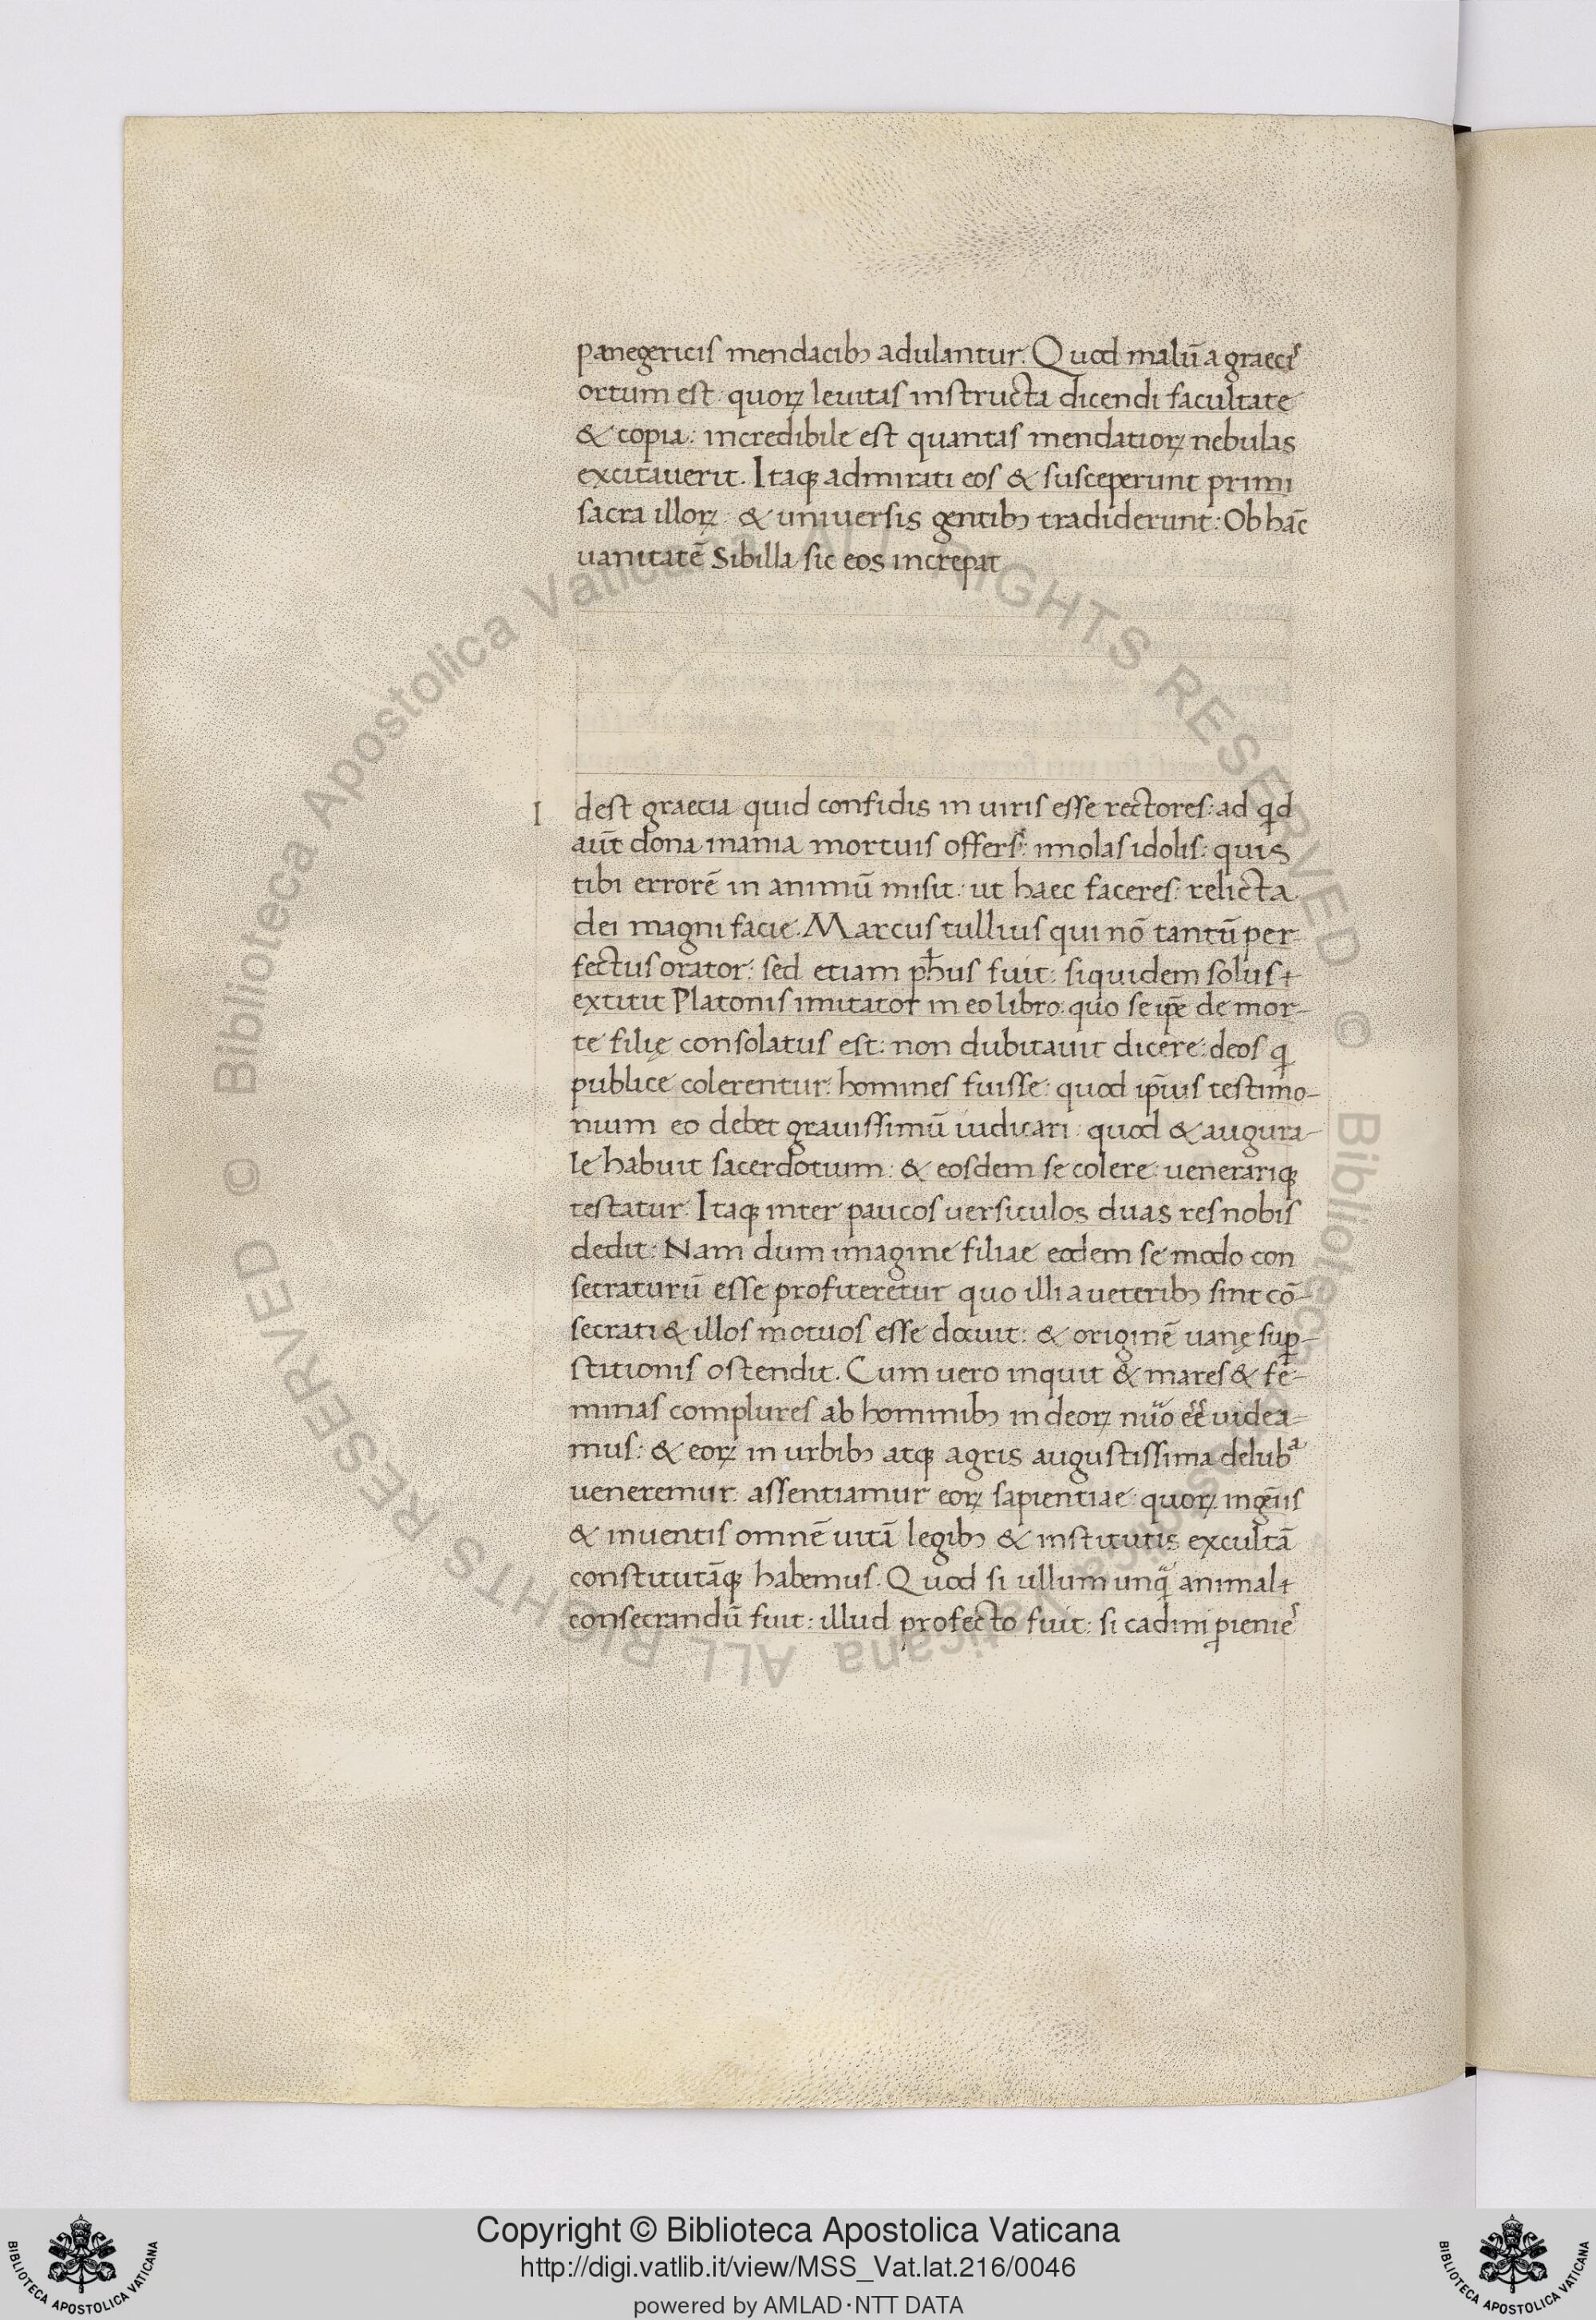 panegericis mendacibꝫ adulantur. Quod malū a graecis
ortum est: quoꝝ leuitas instructa dicendi facultate
& copia: incredibile est quantas mendatioꝝ nebulas
excitauerit. Itaqꝫ admirati eos & susceperunt primi
sacra illoꝝ: & uniuersis gentibꝫ tradiderunt: Ob hāc
uanitatē Sibilla sic eos increpat
I dest graecia quid confidis in uiris esse rectores: ad qd
aūt dona inania mortuis offers: imolas idolis: quis
tibi errorē in animū misit: ut haec faceres: relicta
dei magni facie. Marcus tullius qui nō tantū per-
fectus orator: sed etiam ph̄us fuit: siquidem solus
extitit Platonis imitator in eo libro: quo se ip̄e de mor-
te filię consolatus est: non dubitauit dicere: deos q
publice colerentur: homines fuisse: quod ip̄ius testimo-
nium eo debet grauissimū iudicari: quod & augura-
le habuit sacerdotium: & eosdem se colere: uenerariqꝫ
testatur. Itaqꝫ inter paucos uersiculos duas res nobis
dedit: Nam dum imagine filiae eodem se modo con
secraturū esse profiteretur quo illi a ueteribꝫ sint cō-
secrati & illos motuos esse docuit: & originē uanę suꝑ-
stitionis ostendit. Cum uero inquit & mares & fe-
minas complures ab hominibꝫ in deoꝝ nūo eē uidea-
mus: & eoꝝ in urbibꝫ atqꝫ agris augustissima delubᵃ
ueneremur: assentiamur eoꝝ sapientiae: quoꝝ ingēiis
& inuentis omnē uitā legibꝫ & institutis excultā
constitutāqꝫ habemus. Quod si ullum unq animal
consecrandū fuit: illud profecto fuit: si cadmi ꝓienies
© Biblioteca Apostolica Vaticana ALL RIGHTS RESERVED © Biblioteca Apostolica Vaticana ALL RIGHTS RESERVED
Copyright © Biblioteca Apostolica Vaticana
http://digi.vatlib.it/view/MSS_Vat.lat.216/0046
powered by AMLAD·NTT DATA
BIBLIOTECA APOSTOLICA VATICANA
BIBLIOTECA APOSTOLICA VATICANA